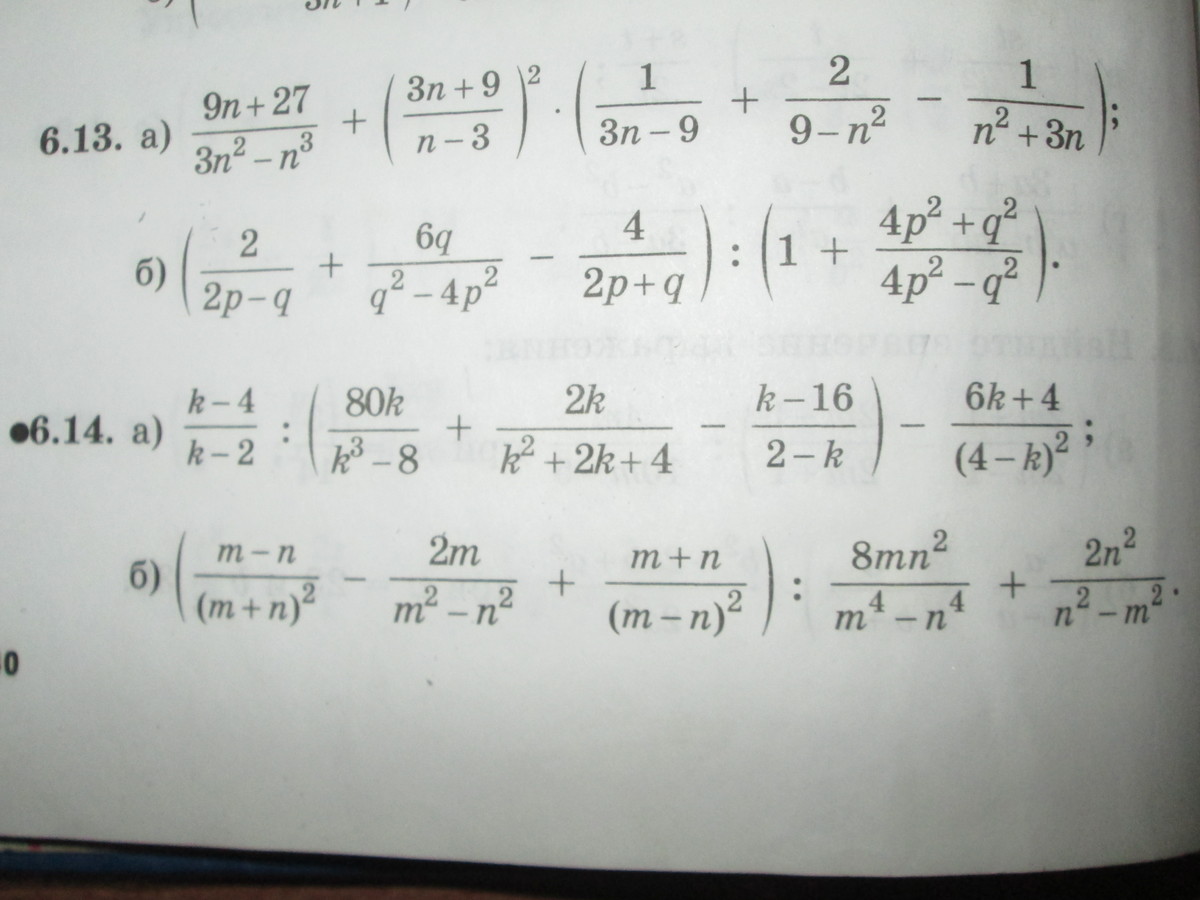 6.13. а) \frac{9n+27}{3n^2-n^3} + \left(\frac{3n+9}{n-3}\right)^2 \cdot \left(\frac{1}{3n-9} + \frac{2}{9-n^2} - \frac{1}{n^2+3n}\right);
б) \left(\frac{2}{2p-q} + \frac{6q}{q^2-4p^2} - \frac{4}{2p+q}\right) : \left(1 + \frac{4p^2+q^2}{4p^2-q^2}\right).
●6.14. а) \frac{k-4}{k-2} : \left(\frac{80k}{k^3-8} + \frac{2k}{k^2+2k+4} - \frac{k-16}{2-k}\right) - \frac{6k+4}{(4-k)^2};
б) \left(\frac{m-n}{(m+n)^2} - \frac{2m}{m^2-n^2} + \frac{m+n}{(m-n)^2}\right) : \frac{8mn^2}{m^4-n^4} + \frac{2n^2}{n^2-m^2}.